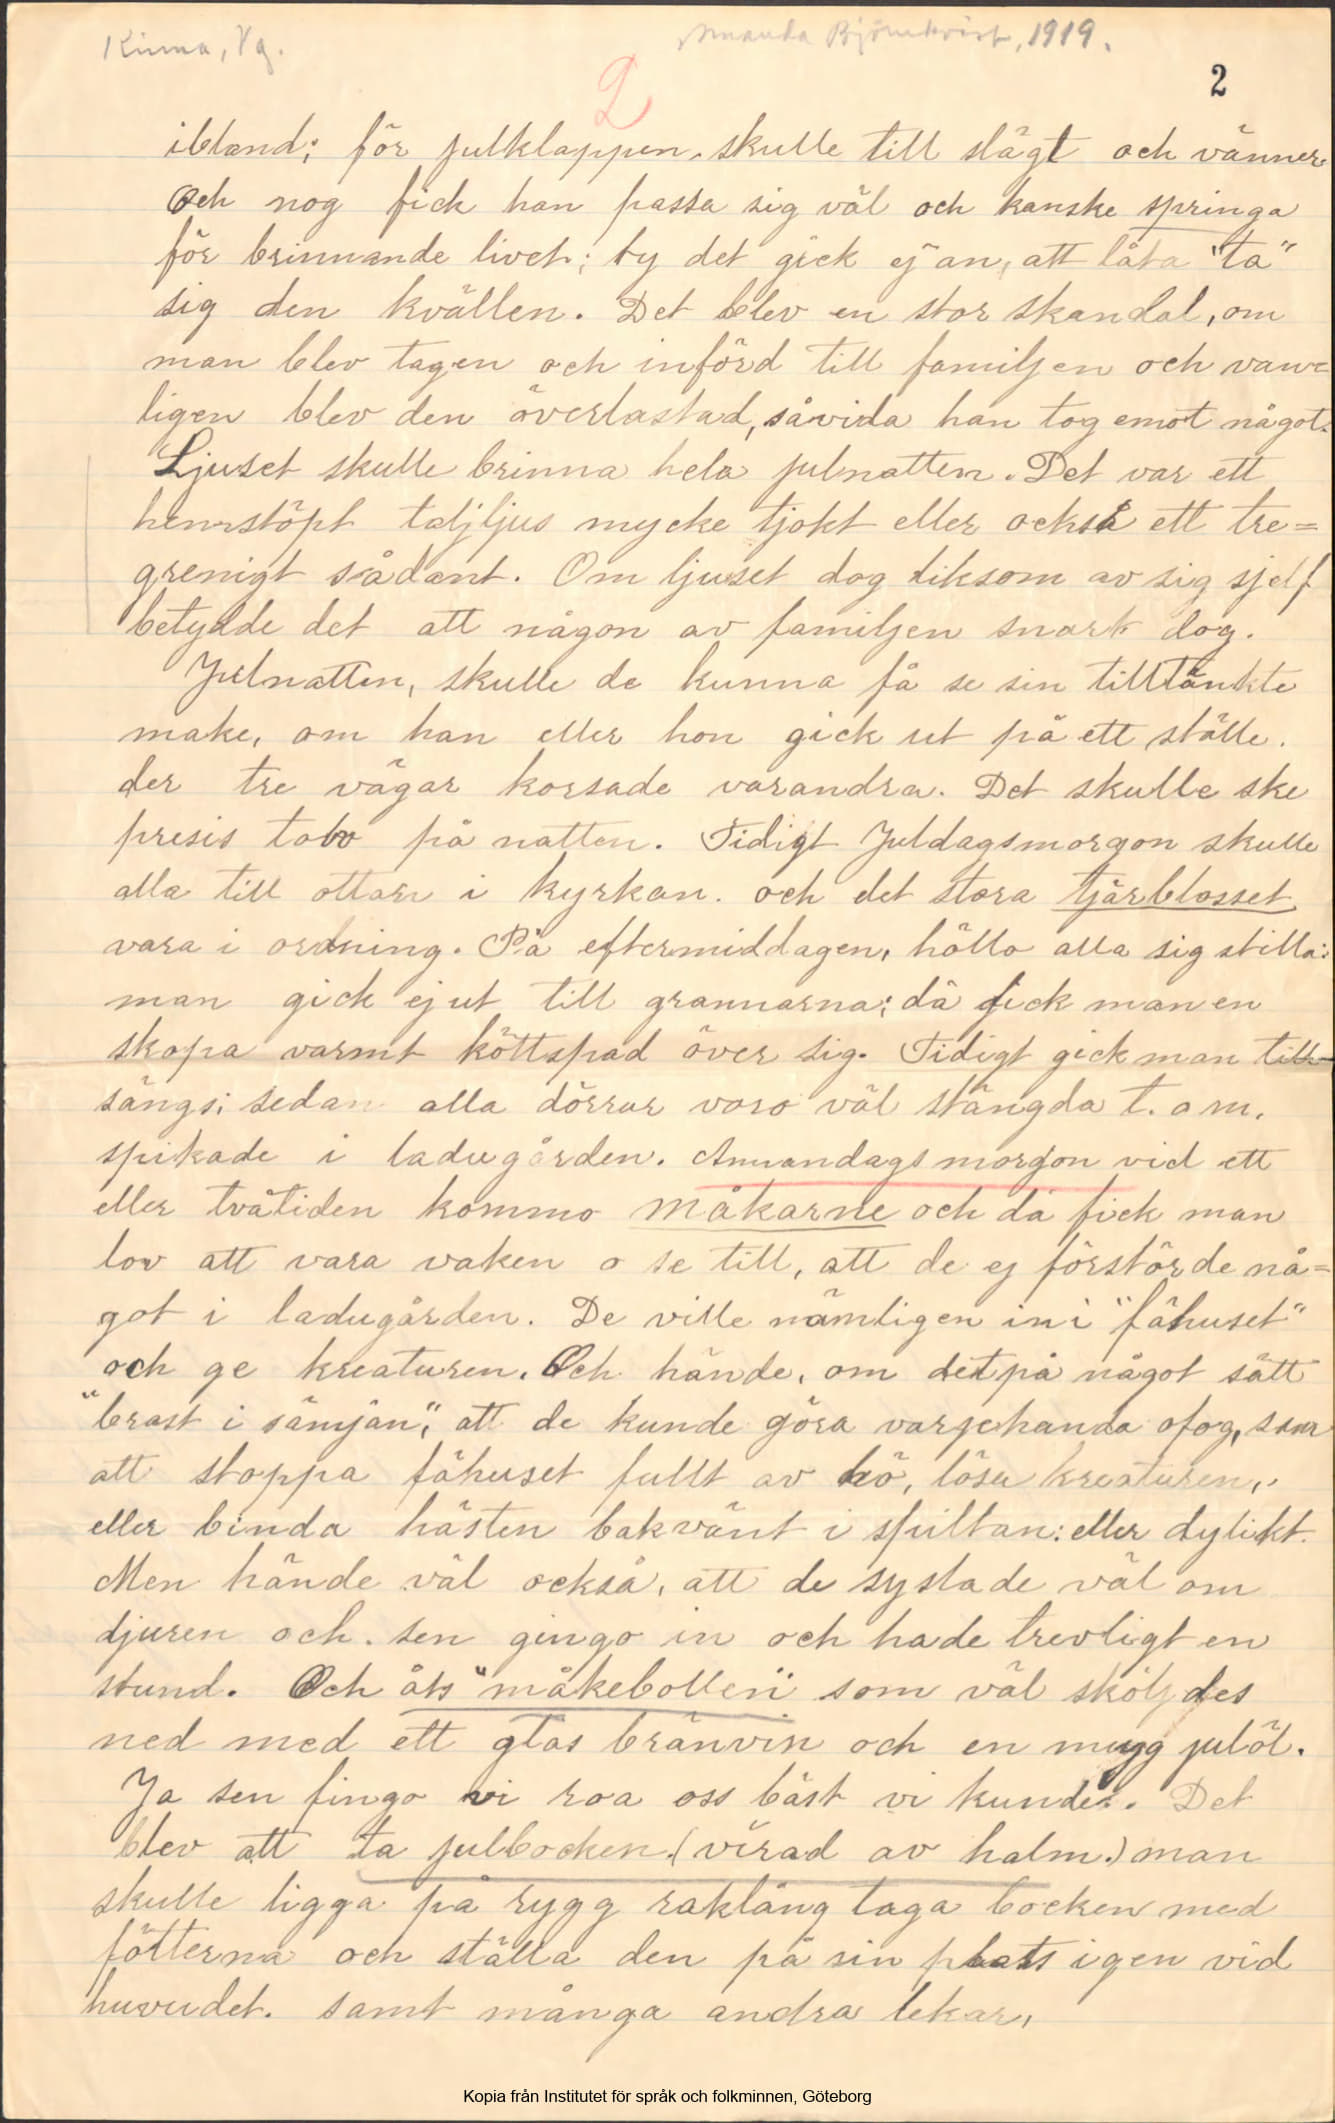 Kinna, Vg.
Amanda Björnkvist, 1919.
2
2
ibland; för julklappen skulle till slägt och vänner.
Och nog fick han passa sig väl och kanske springa
för brinnande livet; ty det gick ej an, att låta "ta"
sig den kvällen. Det blev en stor skandal, om
man blev tagen och införd till familjen och vanc
ligen blev den överlastad, såvida han tog emot något.
Ljuset skulle brinna hela julnatten. Det var ett
hemstöpt taljljus mycke tjokt eller också ett tre=
grenigt sådant. Om ljuset dog liksom av sig sjelf
betydde det att någon av familjen snart dog.
Julnatten, skulle de kunna få se sin tilltänkte
make, om han eller hon gick ut på ett ställe.
der tre vägar korsade varandra. Det skulle ske
presis tolv på natten. Tidigt Juldagsmorgon skulle
alla till ottan i kyrkan. och det stora tjärblosset
vara i ordning. På eftermiddagen, höllo alla sig stilla;
man gick ej ut till grannarna; då fick man en
skopa varmt köttspad över sig. Tidigt gick man till
sängs; sedan alla dörrar voro väl stängda t. o m.
spikade i ladugården. Annandagsmorgon vid ett
eller tvåtiden kommo måkarne och då fick man
lov att vara vaken o se till, att de ej förstörde nå=
got i ladugården. De ville nämligen in i "fähuset"
och ge kreaturen. Och hände, om det på något sätt
"brast i sämjan", att de kunde göra varjehanda ofog, som
att stoppa fähuset fullt av hö, lösa kreaturen,
eller binda hästen bakvänt i spiltan: eller dylikt.
Men hände väl också, att de systade väl om
djuren och. sen gingo in och hade trevligt en
stund. Och åts "måkebollen" som väl sköljdes
ned med ett glas bränvin och en mugg julöl.
Ja sen fingo vi roa oss bäst vi kunde. Det
blev att ta julbocken. (virad av halm.) man
skulle ligga på rygg raklång taga bocken med
fötterna och ställa den på sin plats igen vid
huvudet. samt många andra lekar,
Kopia från Institutet för språk och folkminnen, Göteborg